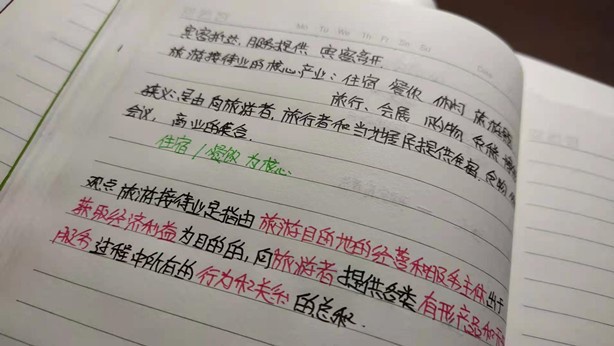 Mo Tu We Th Fr Sa Su
宾客抵达,服务提供 宾客离开
旅游接待业的核心产业:住宿 餐饮 休闲 旅游
旅行、会展 购物
狭义:是由向旅游者,旅行者和当地居民提供食宿、食物
会议,商业的集合.
住宿/餐饮为核心.
观点 旅游接待业是指由旅游目的地的经营和服务主体出于
获取经济利益为目的的,向旅游者提供各类有形产品和
服务过程中所有的行为和关系的总和.